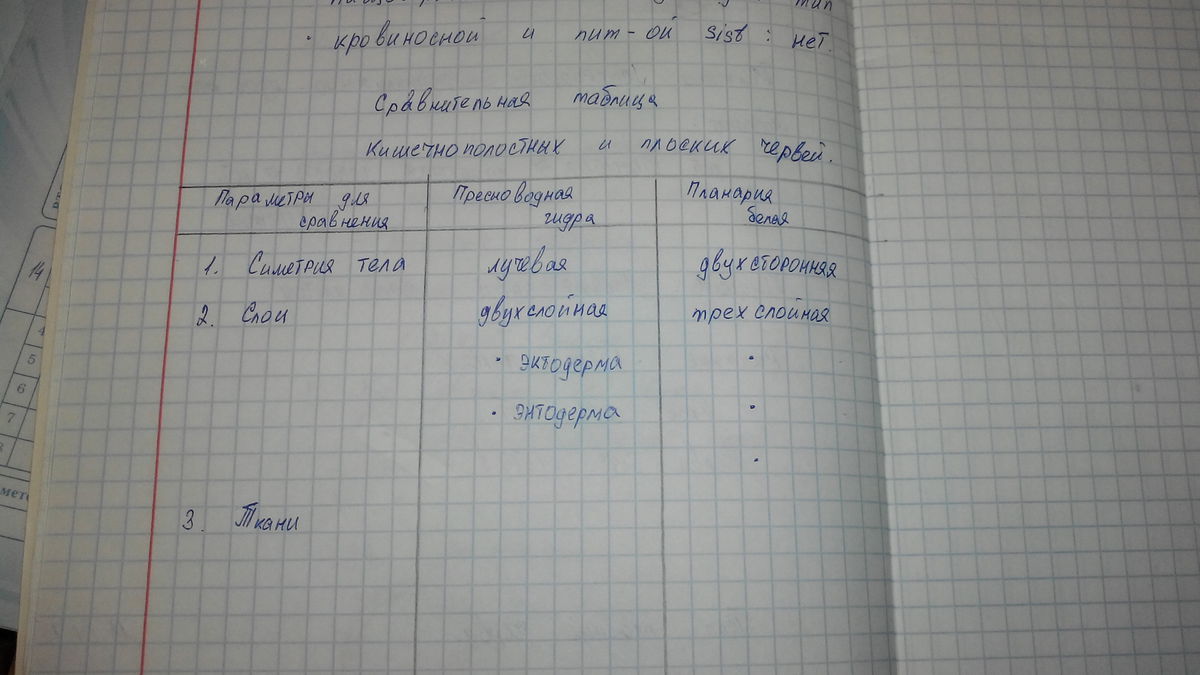 кровиносной и пит-ой sist : нет.
Сравнительная таблица
Кишечнополостных и плоских червей.
Параметры для сравнения
Пресноводная гидра
Планария белая
1. Симетрия тела лучевая двухсторонняя
2. Слои двухслойная трехслойная
• эктодерма •
• энтодерма •
•
3. Ткани
14
4
5
6
7